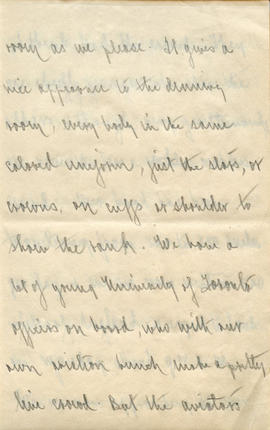 room as we please. It gives a
nice appearance to the dinning
room, every body in the same
colored uniform, just the stars, or
crowns, on cuffs or shoulder to
show the rank. We have a
lot of young University of Toronto
officers on board, who with our
own aviation bunch make a pretty
live crowd. But the aviators